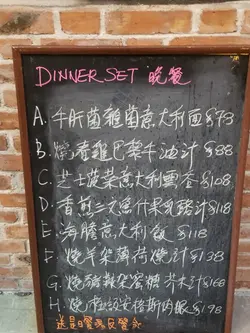 DINNER SET 晚餐
A. 牛肝菌雜菌意大利面 $78
B. 燒春雞巴菜牛油汁 $88
C. 芝士菠菜意大利雲吞 $108
D. 香煎三文魚什果乳酪汁 $118
E. 海膽意大利飯 $118
F. 燒羊架薄荷燒汁 $138
G. 燒豬鞍架蜜糖芥末汁 $168
H. 燒安格斯肉眼 $198
送是日餐湯及餐飲